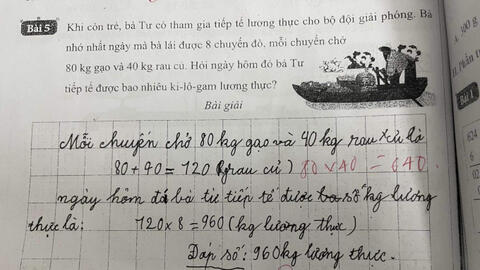 Bài 5
Khi còn trẻ, bà Tư có tham gia tiếp tế lương thực cho bộ đội giải phóng. Bà
nhớ nhất ngày mà bà lái được 8 chuyến đò, mỗi chuyến chở
80 kg gạo và 40 kg rau củ. Hỏi ngày hôm đó bà Tư
tiếp tế được bao nhiêu ki-lô-gam lương thực?
Bài giải
Mỗi chuyến chở 80 kg gạo và 40 kg rau củ là
80 + 40 = 120 (rau củ) 80 x 40 = 640
ngày hôm đó bà tư tiếp tế được số kg lương
thực là:
120 x 8 = 960 (kg lương thực)
Đáp số: 960 kg lương thực.
500 g
Bài 1
624
6
02
0